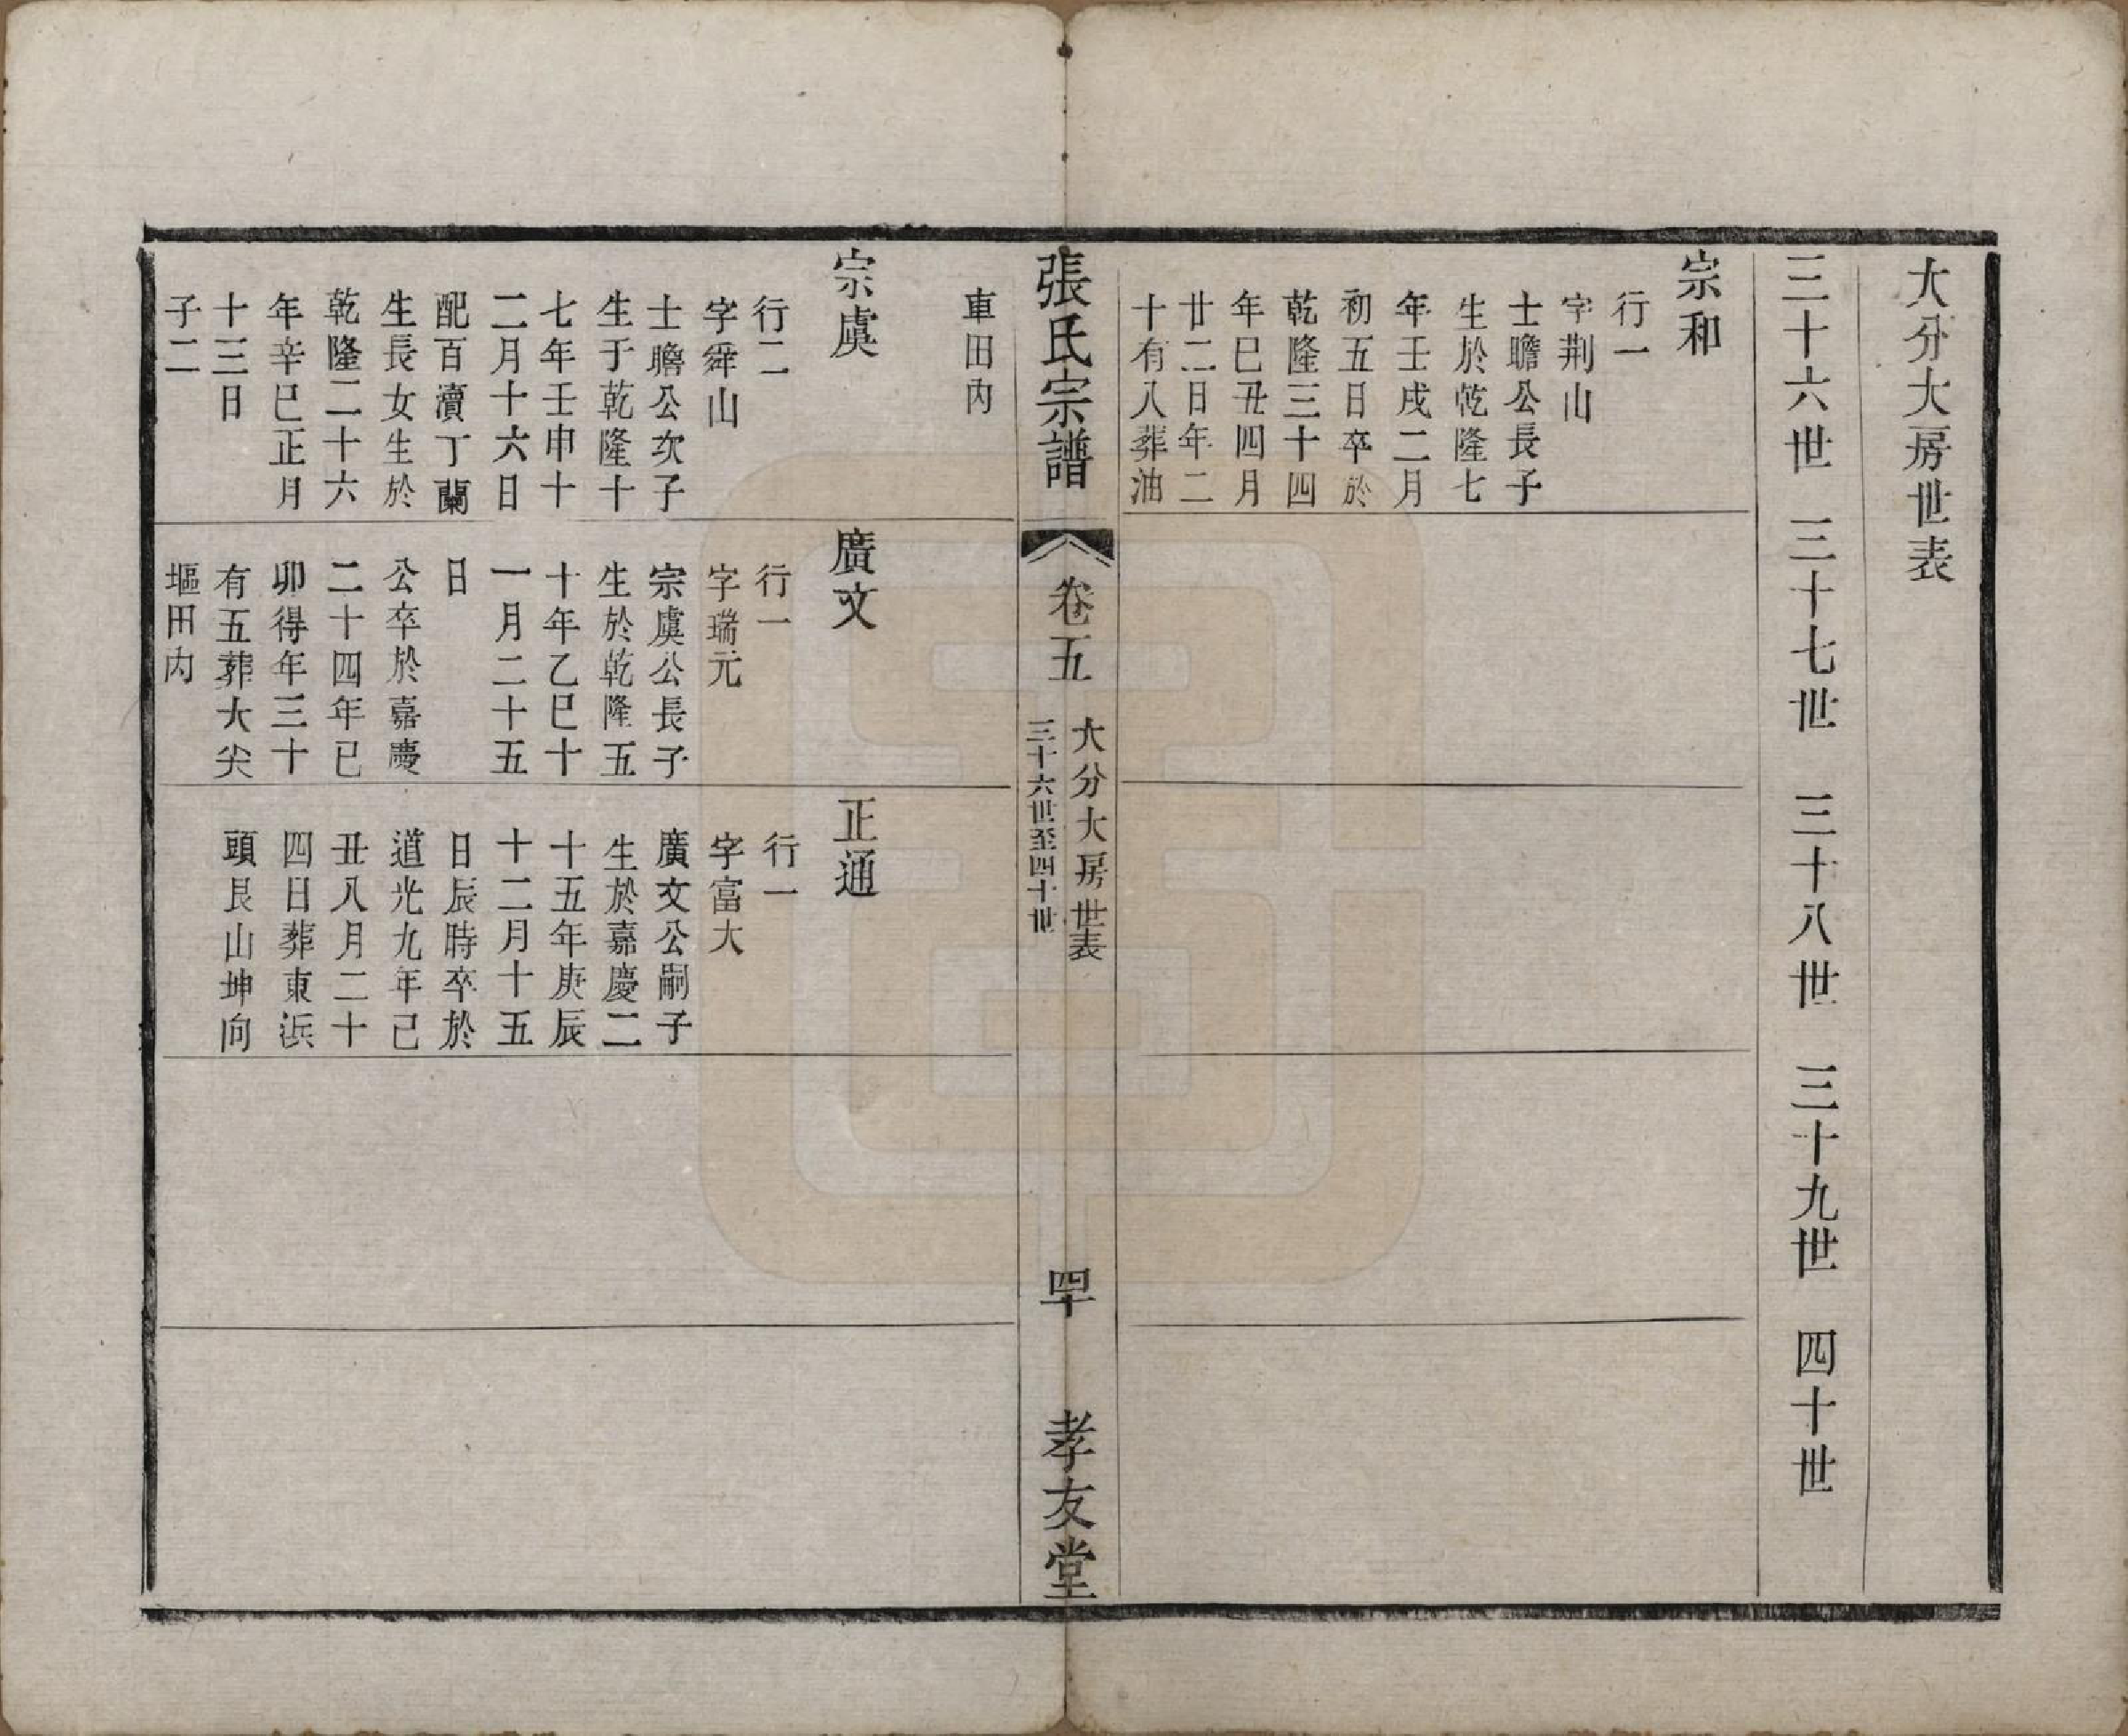 大分大房世表
三十六世　三十七世　三十八世　三十九世　四十世
宗和
行一
字荆山
士瞻公長子
生於乾隆七
年壬戌二月
初五日卒於
乾隆三十四
年巳丑四月
廿二日年二
十有八葬油
張氏宗譜　卷五　大分大房世表　三十六世至四十世　四十　孝友堂
車田內
宗虞
行二
字舜山
士瞻公次子
生于乾隆十
七年壬申十
二月十六日
配百瀆丁蘭
生長女生於
乾隆二十六
年辛巳正月
十三日
子二
廣文
行一
字瑞元
宗虞公長子
生於乾隆五
十年乙巳十
一月二十五
日
公卒於嘉慶
二十四年已
卯得年三十
有五葬大尖
塸田內
正通
行一
字富大
廣文公嗣子
生於嘉慶二
十五年庚辰
十二月十五
日辰時卒於
道光九年己
丑八月二十
四日葬東浜
頭艮山坤向